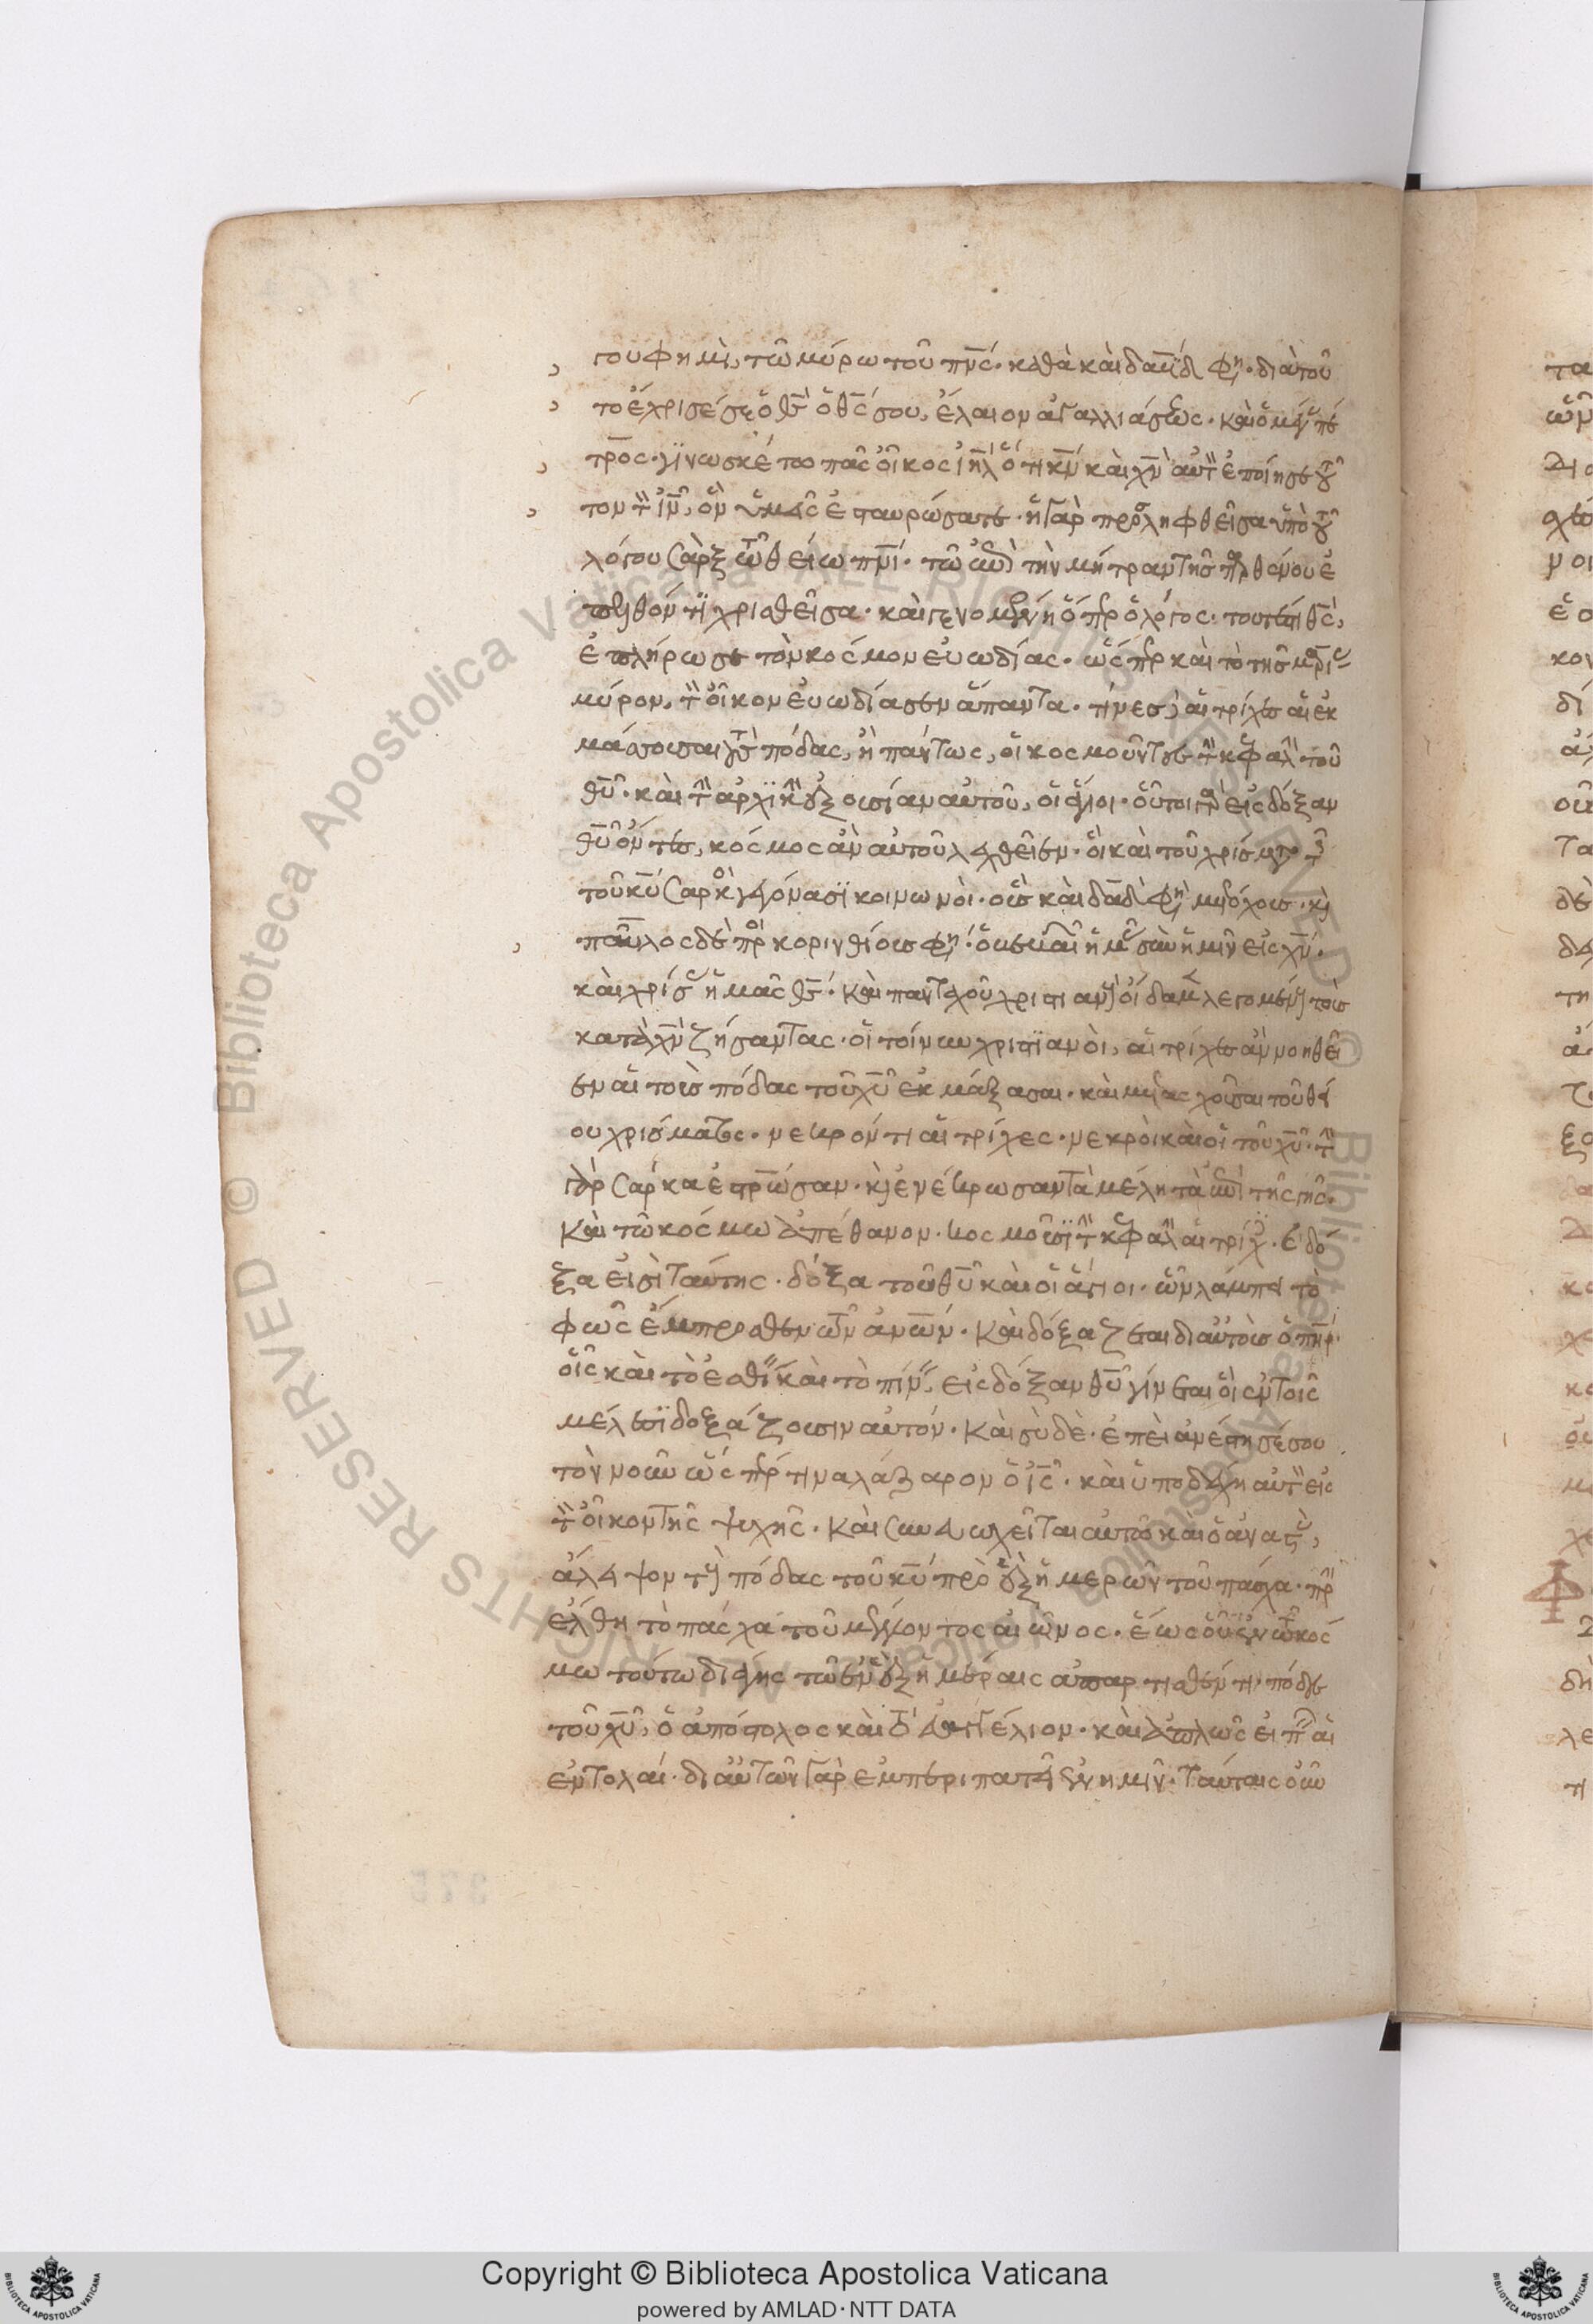 του φημὶ, τῶ μύρω τοῦ πν̅ς· καθὰ καὶ δα̅δ φη· διὰ τοῦ
το ἔχρισέ σε ὁ θς̅ ὁ θς̅ σου, ἔλαιον ἀγαλλιάσεως· καὶ ὁ μέγ πέ
τρος· γϊνωσκέτω πᾶς οἶκος ἰη̅λ ὅτι κν̅ καὶ χν̅ αὐτὸν ἐποίησε τοῦ
τον τὸν ιν̅, ὃν ὑμεῖς ἐσταυρώσατε· ἡ γὰρ προσληφθεῖσα ὑπὸ τοῦ
λόγου σὰρξ τῶ θείω πνι̅· τῶ ἐπὶ τὴν μήτραν τῆς παρθένου ἐ
πελθόντϊ χρισθεῖσα· καὶ γενομένη ὅπερ ὁ λόγος· τουτέστι θς̅,
ἐπλήρωσε τὸν κόσμον εὐωδίας· ὥσπερ καὶ τὸ τῆς μαρίας
μύρον, τὸν οἶκον εὐωδίασεν ἅπαντα· τίνες αἱ τρίχες αἱ ἐκ
μάσσουσαι τοὺς πόδας, ἢ πάντως, οἱ κοσμοῦντες τὴν κεφαλὴν τοῦ
θυ̅· καὶ τὴν ἀρχϊκὴν ἐξουσίαν αὐτοῦ, οἱ ἅγιοι· οὗτοι γὰρ εἰς δόξαν
θυ̅ ὄντες, κόσμος ἂν αὐτοῦ λεχθεῖεν· οἳ καὶ τοῦ χρίσματος
τοῦ κυ̅ σαρκὸς γεγόνασϊ κοινωνοὶ· οὓς καὶ δα̅δ φη μετόχους· καὶ
παῦλος δὲ πρὸς κορινθίους φη· ὁ βεβαιῶν ἡμᾶς σὺν ὑμῖν εἰς χν̅·
καὶ χρίσας ἡμᾶς θς̅· καὶ πανταχοῦ χριστιανοὺς οἴδαμεν λεγομένους τοὺς
κατὰ χν̅ ζήσαντας· οἱ τοίνυν χριστϊανοὶ, αἱ τρίχες ἂν νοηθεῖ
εν αἱ τοὺς πόδας τοῦ χυ̅ ἐκμάξασαι· καὶ μετασχοῦσαι τοῦ θεί
ου χρίσματος· νεκρόν τι αἱ τρίχες· νεκροὶ καὶ οἱ τοῦ χυ̅· τὴν
γὰρ σάρκα ἐσταύρωσαν· καὶ ἐνέκρωσαν τὰ μέλη τὰ ἐπὶ τῆς γῆς·
καὶ τῶ κόσμω ἀπέθανον· κοσμοῦσϊ τὴν κεφαλὴν αἱ τρίχες· καὶ δό
ξα εἰσὶ ταύτης· δόξα τοῦ θυ̅ καὶ οἱ ἅγιοι· ὧν λάμπει τὸ
φῶς ἔμπροσθεν τῶν ἀνω̅ν· καὶ δοξάζεται δι αὐτοὺς ὁ πηρ̅·
οἷς καὶ τὸ ἐσθίειν καὶ τὸ πίνειν, εἰς δόξαν θυ̅ γίνεται· οἳ ἐν τοῖς
μέλεσϊ δοξάζουσιν αὐτόν· καὶ σὺ δὲ· ἐπεὶ ἀνέστησέ σου
τὸν νοῦν ὥσπερ τινα λάζαρον ὁ ις̅· καὶ ὑποδέχη αὐτὸν εἰς
τὸν οἶκον τῆς ψυχῆς· καὶ συνευωχεῖται αὐτῶ καὶ ὁ ἀναστὰς,
ἄλειψον τοὺς πόδας τοῦ κυ̅ πρὸ ἓξ ἡμερῶν τοῦ πάσχα· πρὶν
ἔλθη τὸ πάσχα τοῦ μέλλοντος αἰῶνος· ἕως οὗ ἐν τῶ κόσ
μω τούτω διάγης τῶ ἐν ἓξ ἡμέραις ἀπαρτισθέντι· πόδες
τοῦ χυ̅, ὁ ἀπόστολος καὶ τὸ εὐαγγέλιον· καὶ ἁπλῶς εἰπεῖν αἱ
ἐντολαί· δι αὐτῶν γὰρ ἐμπεριπατεῖ ἐν ἡμῖν· ταύταις οὖν
Copyright © Biblioteca Apostolica Vaticana
powered by AMLAD·NTT DATA